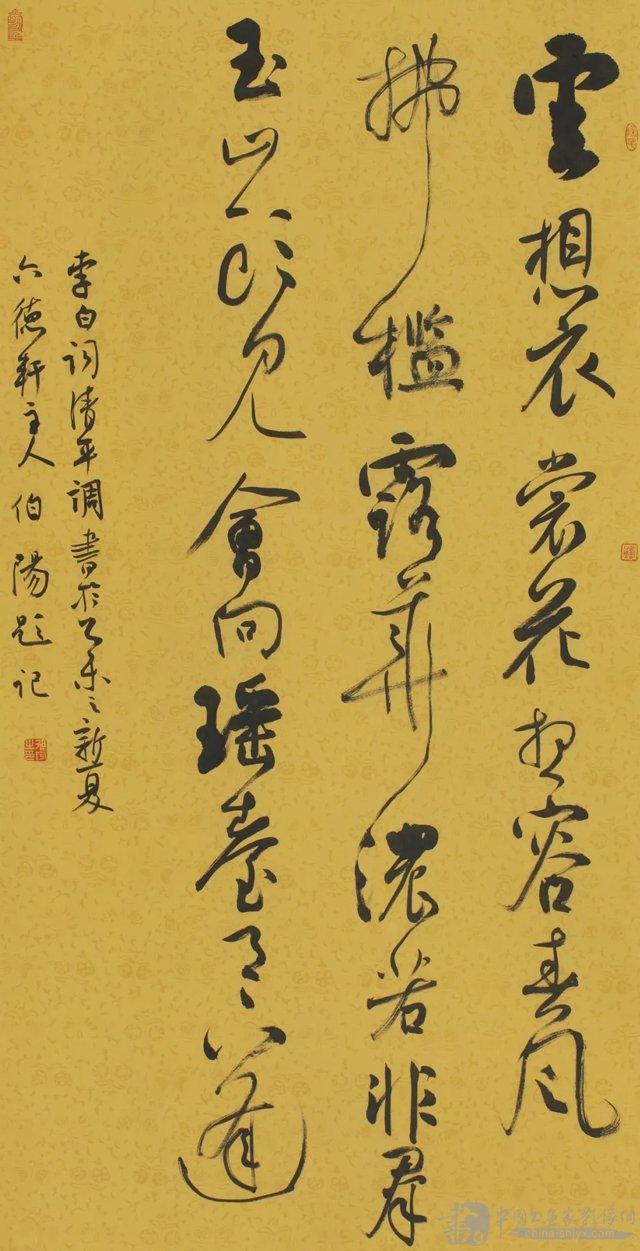 雲想衣裳花想容春风
拂槛露華濃若非群
玉山頭見會向瑶臺月下逢
李白词清平调書於乙未之新夏
六德軒主人伯陽题记